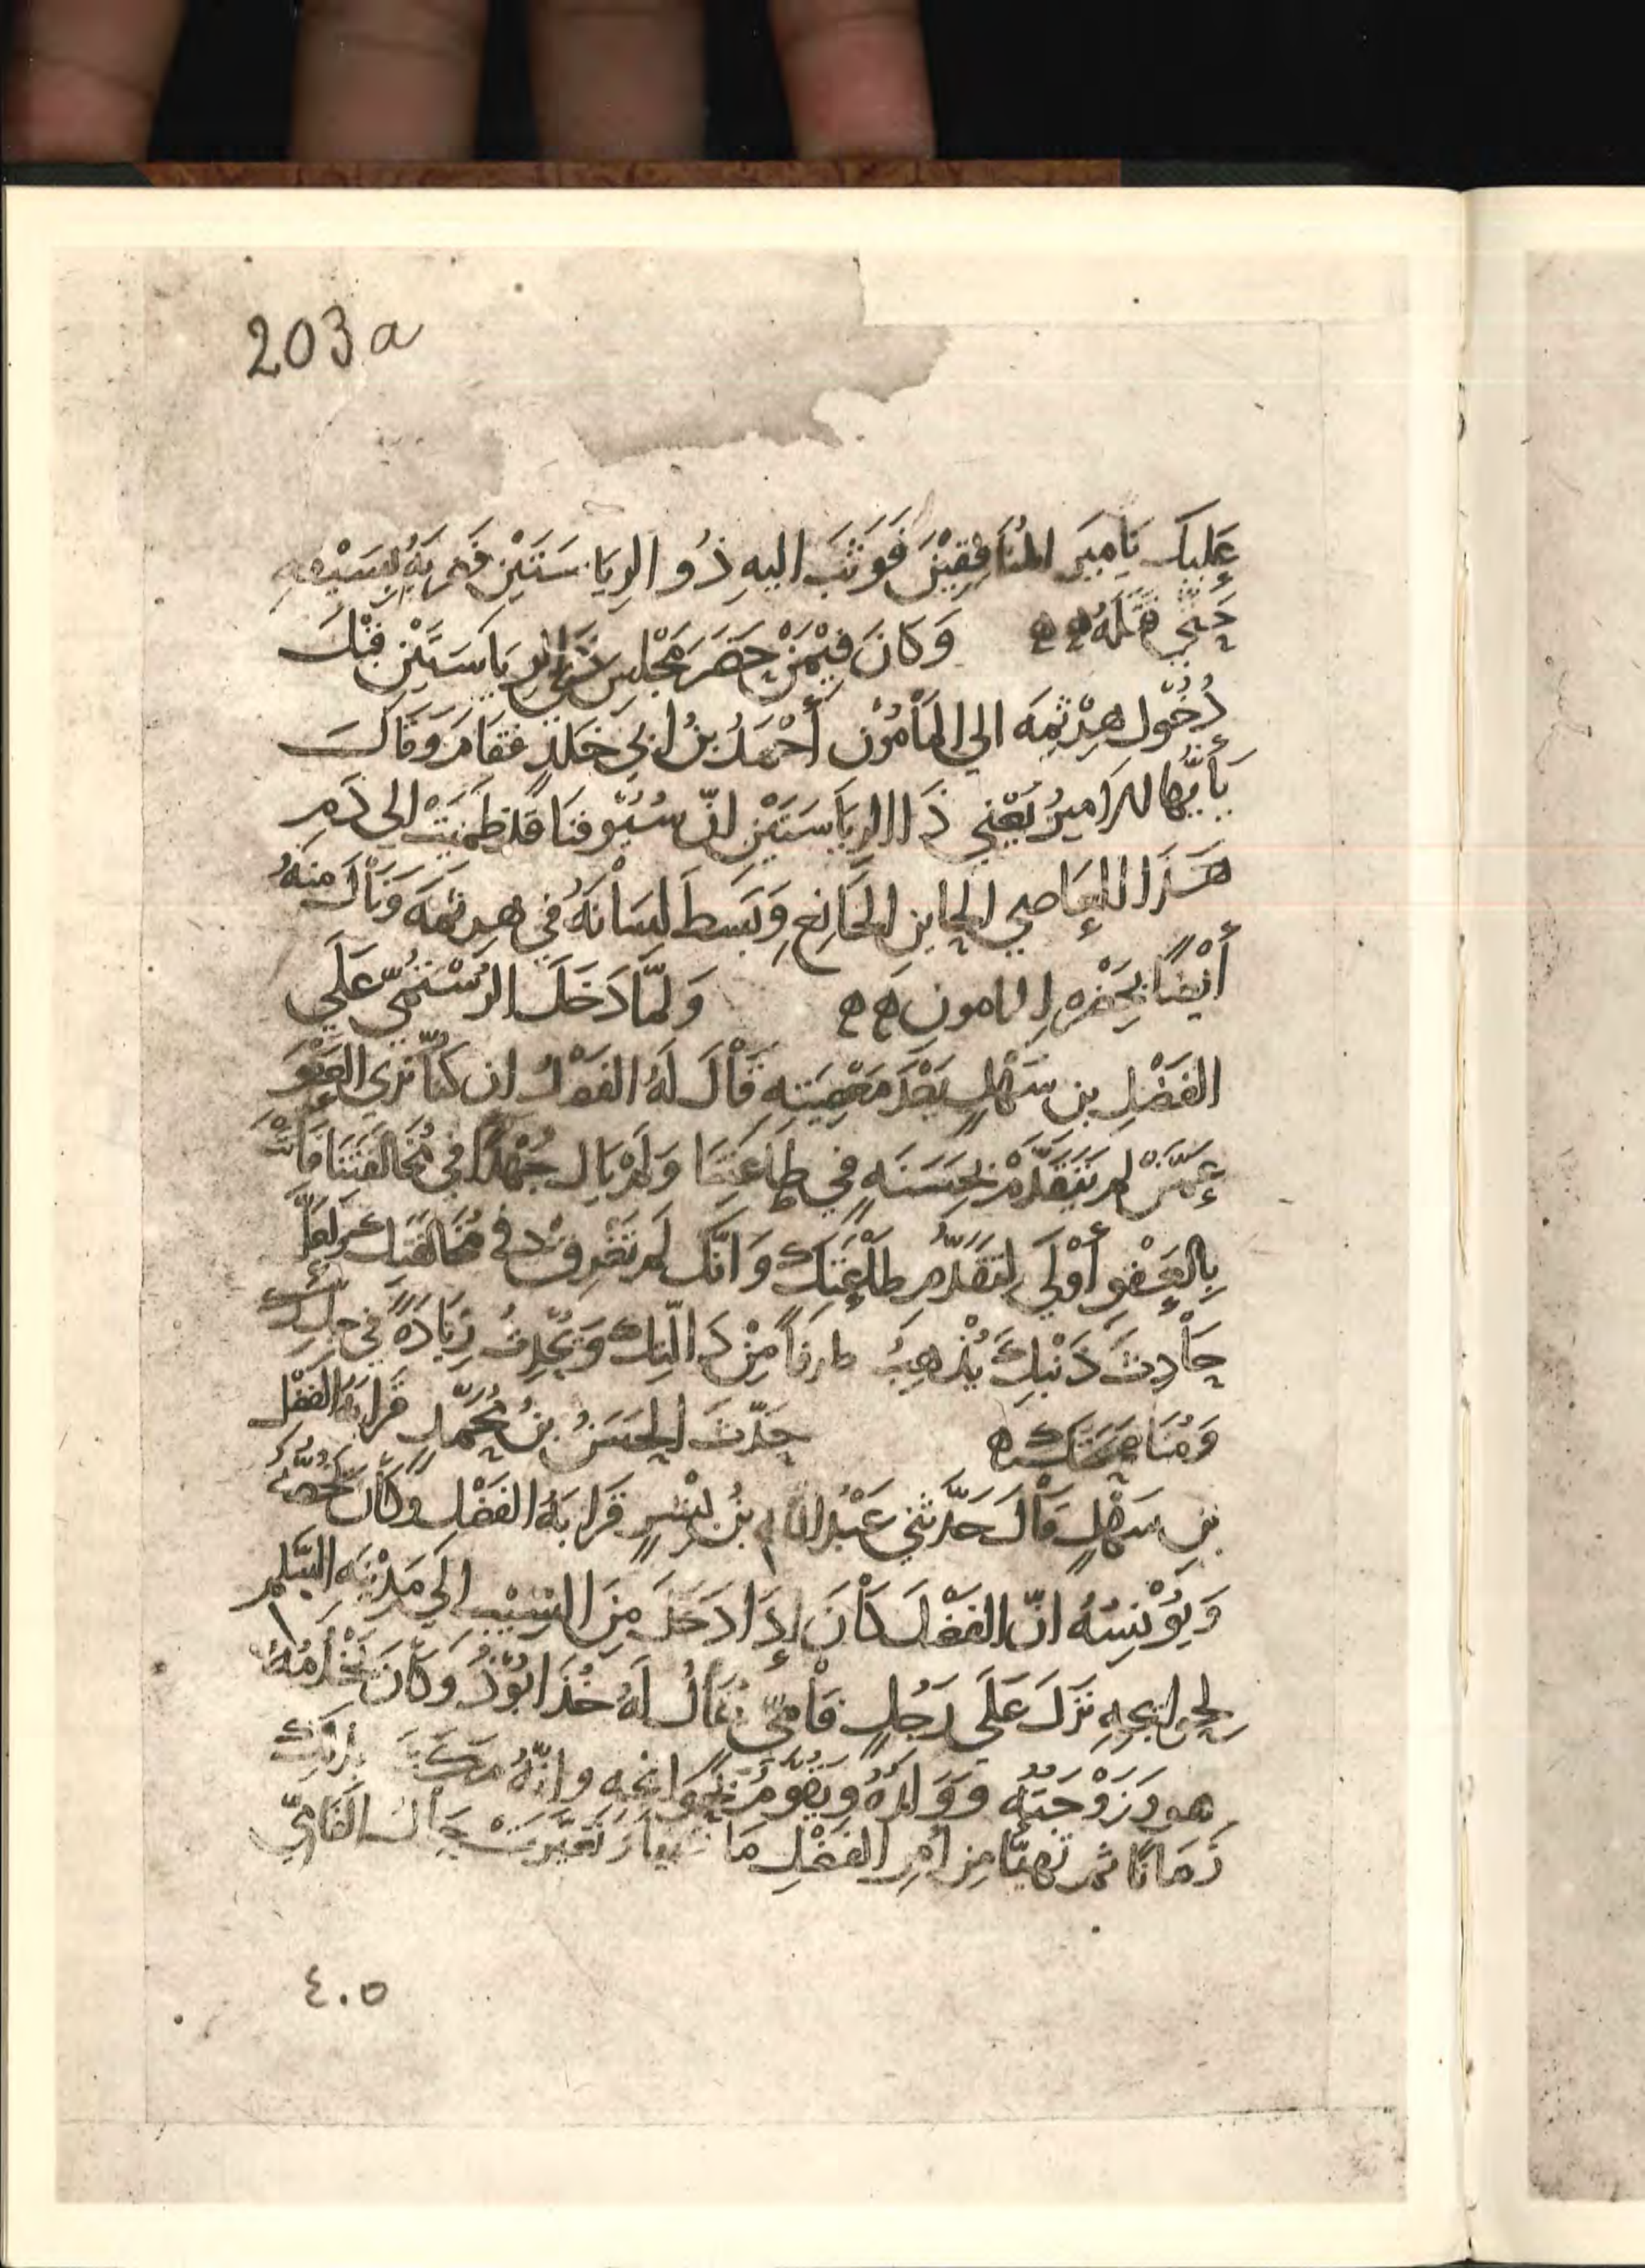 203a
عَلَيكَ يَامِيرَ المُنَافِقِيْنَ فَوَثَبَ اليهِ ذُو الرِيَاسَتَيْنِ فَضَرَبَهُ بِسَيْفِهِ
حَتّي قتَلَهُ ه ه وَكانَ فِيْمَنْ حَضَرَ مَجْلِسَ ذي الرِيَاسَتَيْنِ قَبْلَ
دُخُول هَرْثمَه الي المَأمُوْن أَحْمَدُ بنُ ابي خَلدٍ فقَامَ وَقَالَ
يَأَيُّها الامِيرُ يَعْنِي ذَا الرِيَاسَتَيْنِ انّ سُيُوفنَا قَد ظمِئَتْ الى دَمِ
هَذَا العَاصِي الخاين وَبَسَطَ لِسَانَهُ في هرثمَه وَنَاْلَ مِنهُ
أيْضًا بِحَضْرَهِ المامون ه ه وَلمّا دَخَلَ الرُسْتُمِيّ عَلَي
الفَضْلِ بن سَهْلٍ بَعْدَ مَعْصِيَتِهِ قَاْلَ لَهُ الفَضْلُ ان كنّا نَرَي العَفْوَ
عَمَّنْ لم يَتَقَدَّمْ بِحَسَنَهٍ في طاعَتِنَا وَلَمْ يَال جُهْدًا في مُخَالفَتِنَا فَأنْتَ
بِالعَفْوِ أوْلَي لِتَقَدُّمِ طَاْعَتِكَ وَانَّكَ لم تُغرِق في مُخَالَفَتِك وَلعَلَّ
حَاْدِثَ ذَنْبِكَ يُذْهِبُ طرفاً مِنْ دَالّتِكَ وَيُحْدِثُ زِيَادَهً في
وَمُنَاصَحَتِكَ ه حَدّثَ الحَسَنُ بنُ مُحَمّدٍ قَرابَهُ الفَضْلِ
بنِ سَهْلٍ قَاْلَ حَدَّثَنِي عَبْدُ اللهِ بنُ بِشْرٍ قَرَابَهُ الفَضْلِ وَكَاْنَ يَخُصّهُ
وَيُوْنِسُهُ انّ الفَضْلَ كَاْنَ إذَا دَخَلَ مِنَ السِيْبِ الَي مَدْيِنَه السَّلمِ
لِحَوايِجِهِ نَزَلَ عَلَي رَجُلٍ فَاْمِيّ يُقَالُ لَهُ خُذَابُوْذُ وَكَانَ يَخْدُمُهُ
هو وَزَوْجَتُه وَوَلدُهُ وَيَقُوْمُ بِحَوَايجِه وانّهُ مَكثَ بِذلِكَ
زَمَانًا ثم تَهيَّا مِن امْرِ الفَضْلِ مَا تَهيا وتَغَيَّرَتْ حَالُ الفَامِيّ
٤٠٥